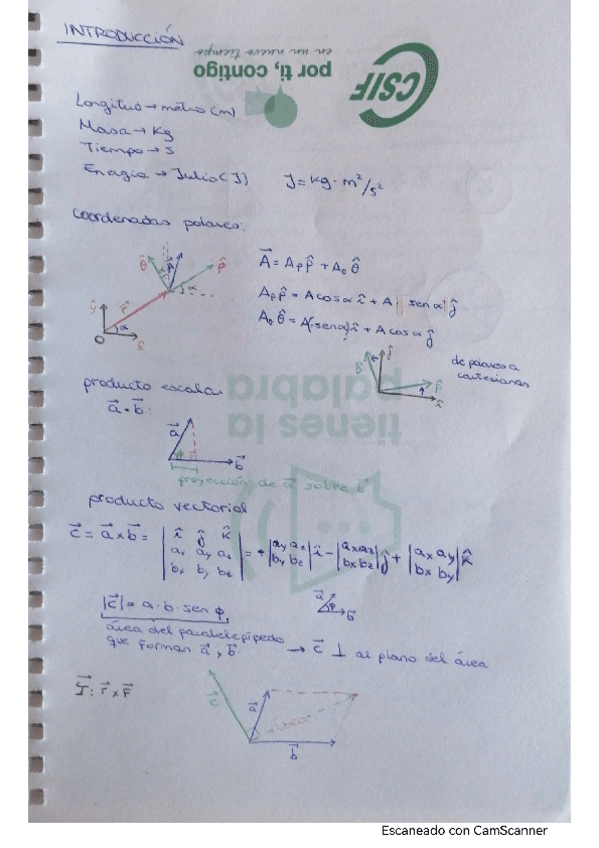 INTRODUCCIÓN
en un nuevo tiempo
por ti, contigo
CSIF
Longitud → metro (m)
Masa → Kg
Tiempo → s
Energía → Julio (J) J = kg · m²/s²
Coordenadas polares:
θ̂ ρ̂
ŷ r⃗ α
O x̂
A⃗ = Aρ ρ̂ + Aθ θ̂
Aρ ρ̂ = A cos α î + A sen α ĵ
Aθ θ̂ = A(-sen α) î + A cos α ĵ
θ̂ ĵ ρ̂ î
de polares a
cartesianas
tienes la
palabra
producto escalar
a⃗ · b⃗:
a⃗ b⃗
proyección de a⃗ sobre b⃗
producto vectorial
c⃗ = a⃗ × b⃗ = | î ĵ k̂ | = + | ay az | î − | ax az | ĵ + | ax ay | k̂
| ax ay az | | by bz | | bx bz | | bx by |
| bx by bz |
|c⃗| = a · b · sen φ
a⃗ φ b⃗
área del paralelepípedo
que forman a⃗, b⃗. → c⃗ ⊥ al plano del área
r⃗ × F⃗
c⃗ a⃗ área
b⃗
Escaneado con CamScanner